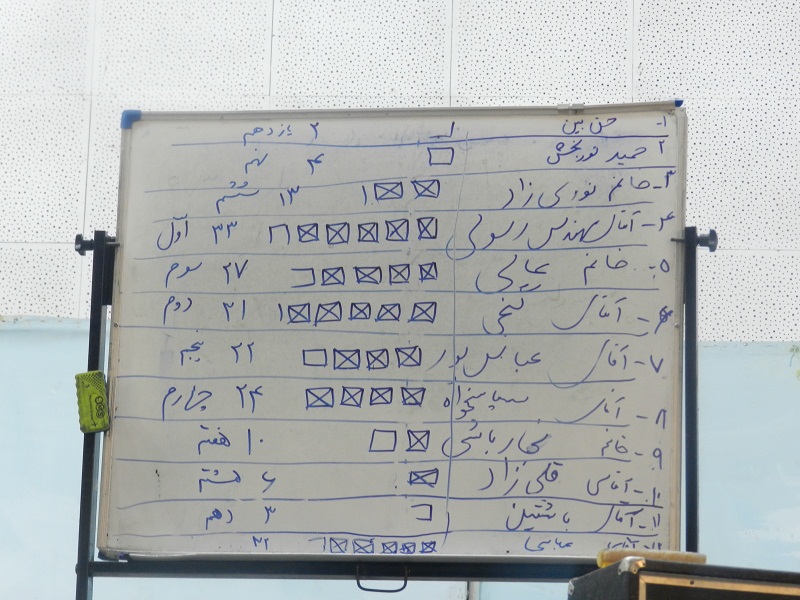 ۱- حق بین ۲ یازدهم
۲ حمید نوربخش ۴ نهم
۳- خانم نوری زاد ۱۳ ششم
۴- آقای مهندس رسولی ۳۳ اول
۵- خانم ۲۷ سوم
۶- آقای ۳۱ دوم
۷- آقای عباس پور ۲۲ پنجم
۸- آقای سپاسخواه ۲۴ چهارم
۹- خانم ۱۰ هفتم
۱۰- آقای قلی زاد ۶ هشتم
۱۱- آقای ۳ دهم